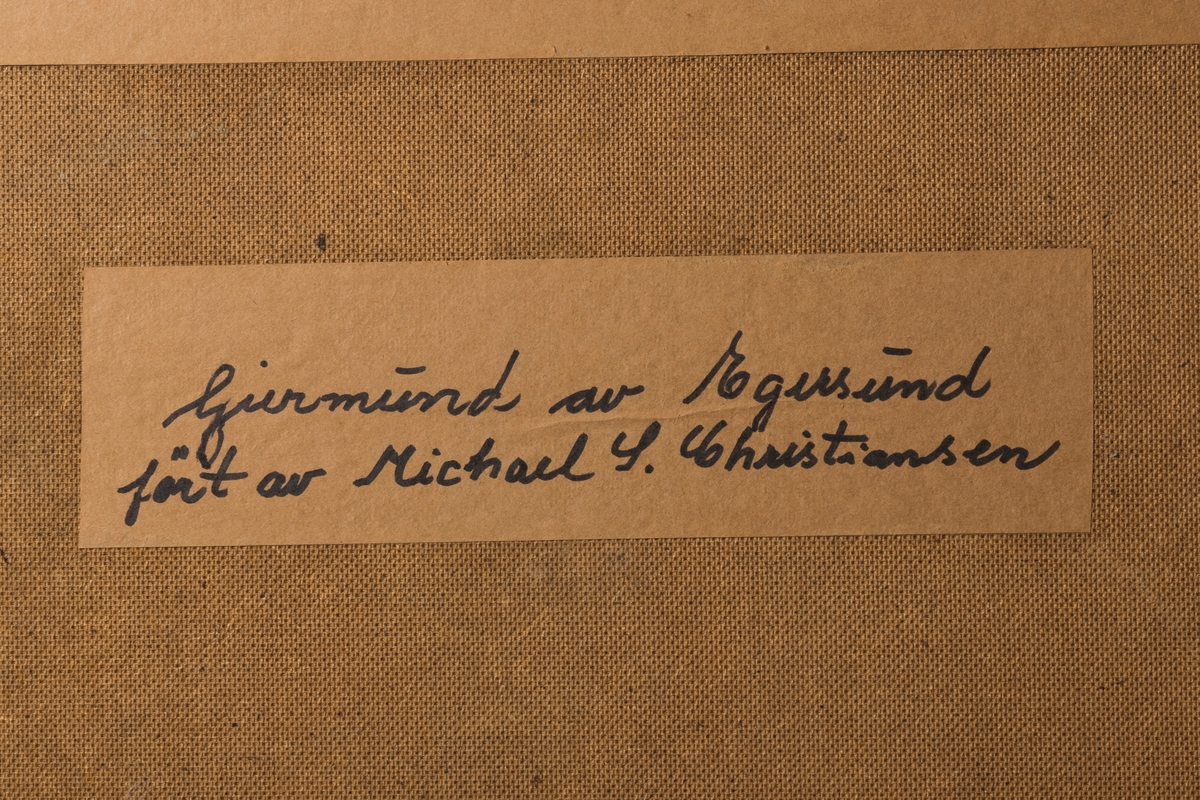 Gjermund av Egersund
fört av Michael S. Christiansen